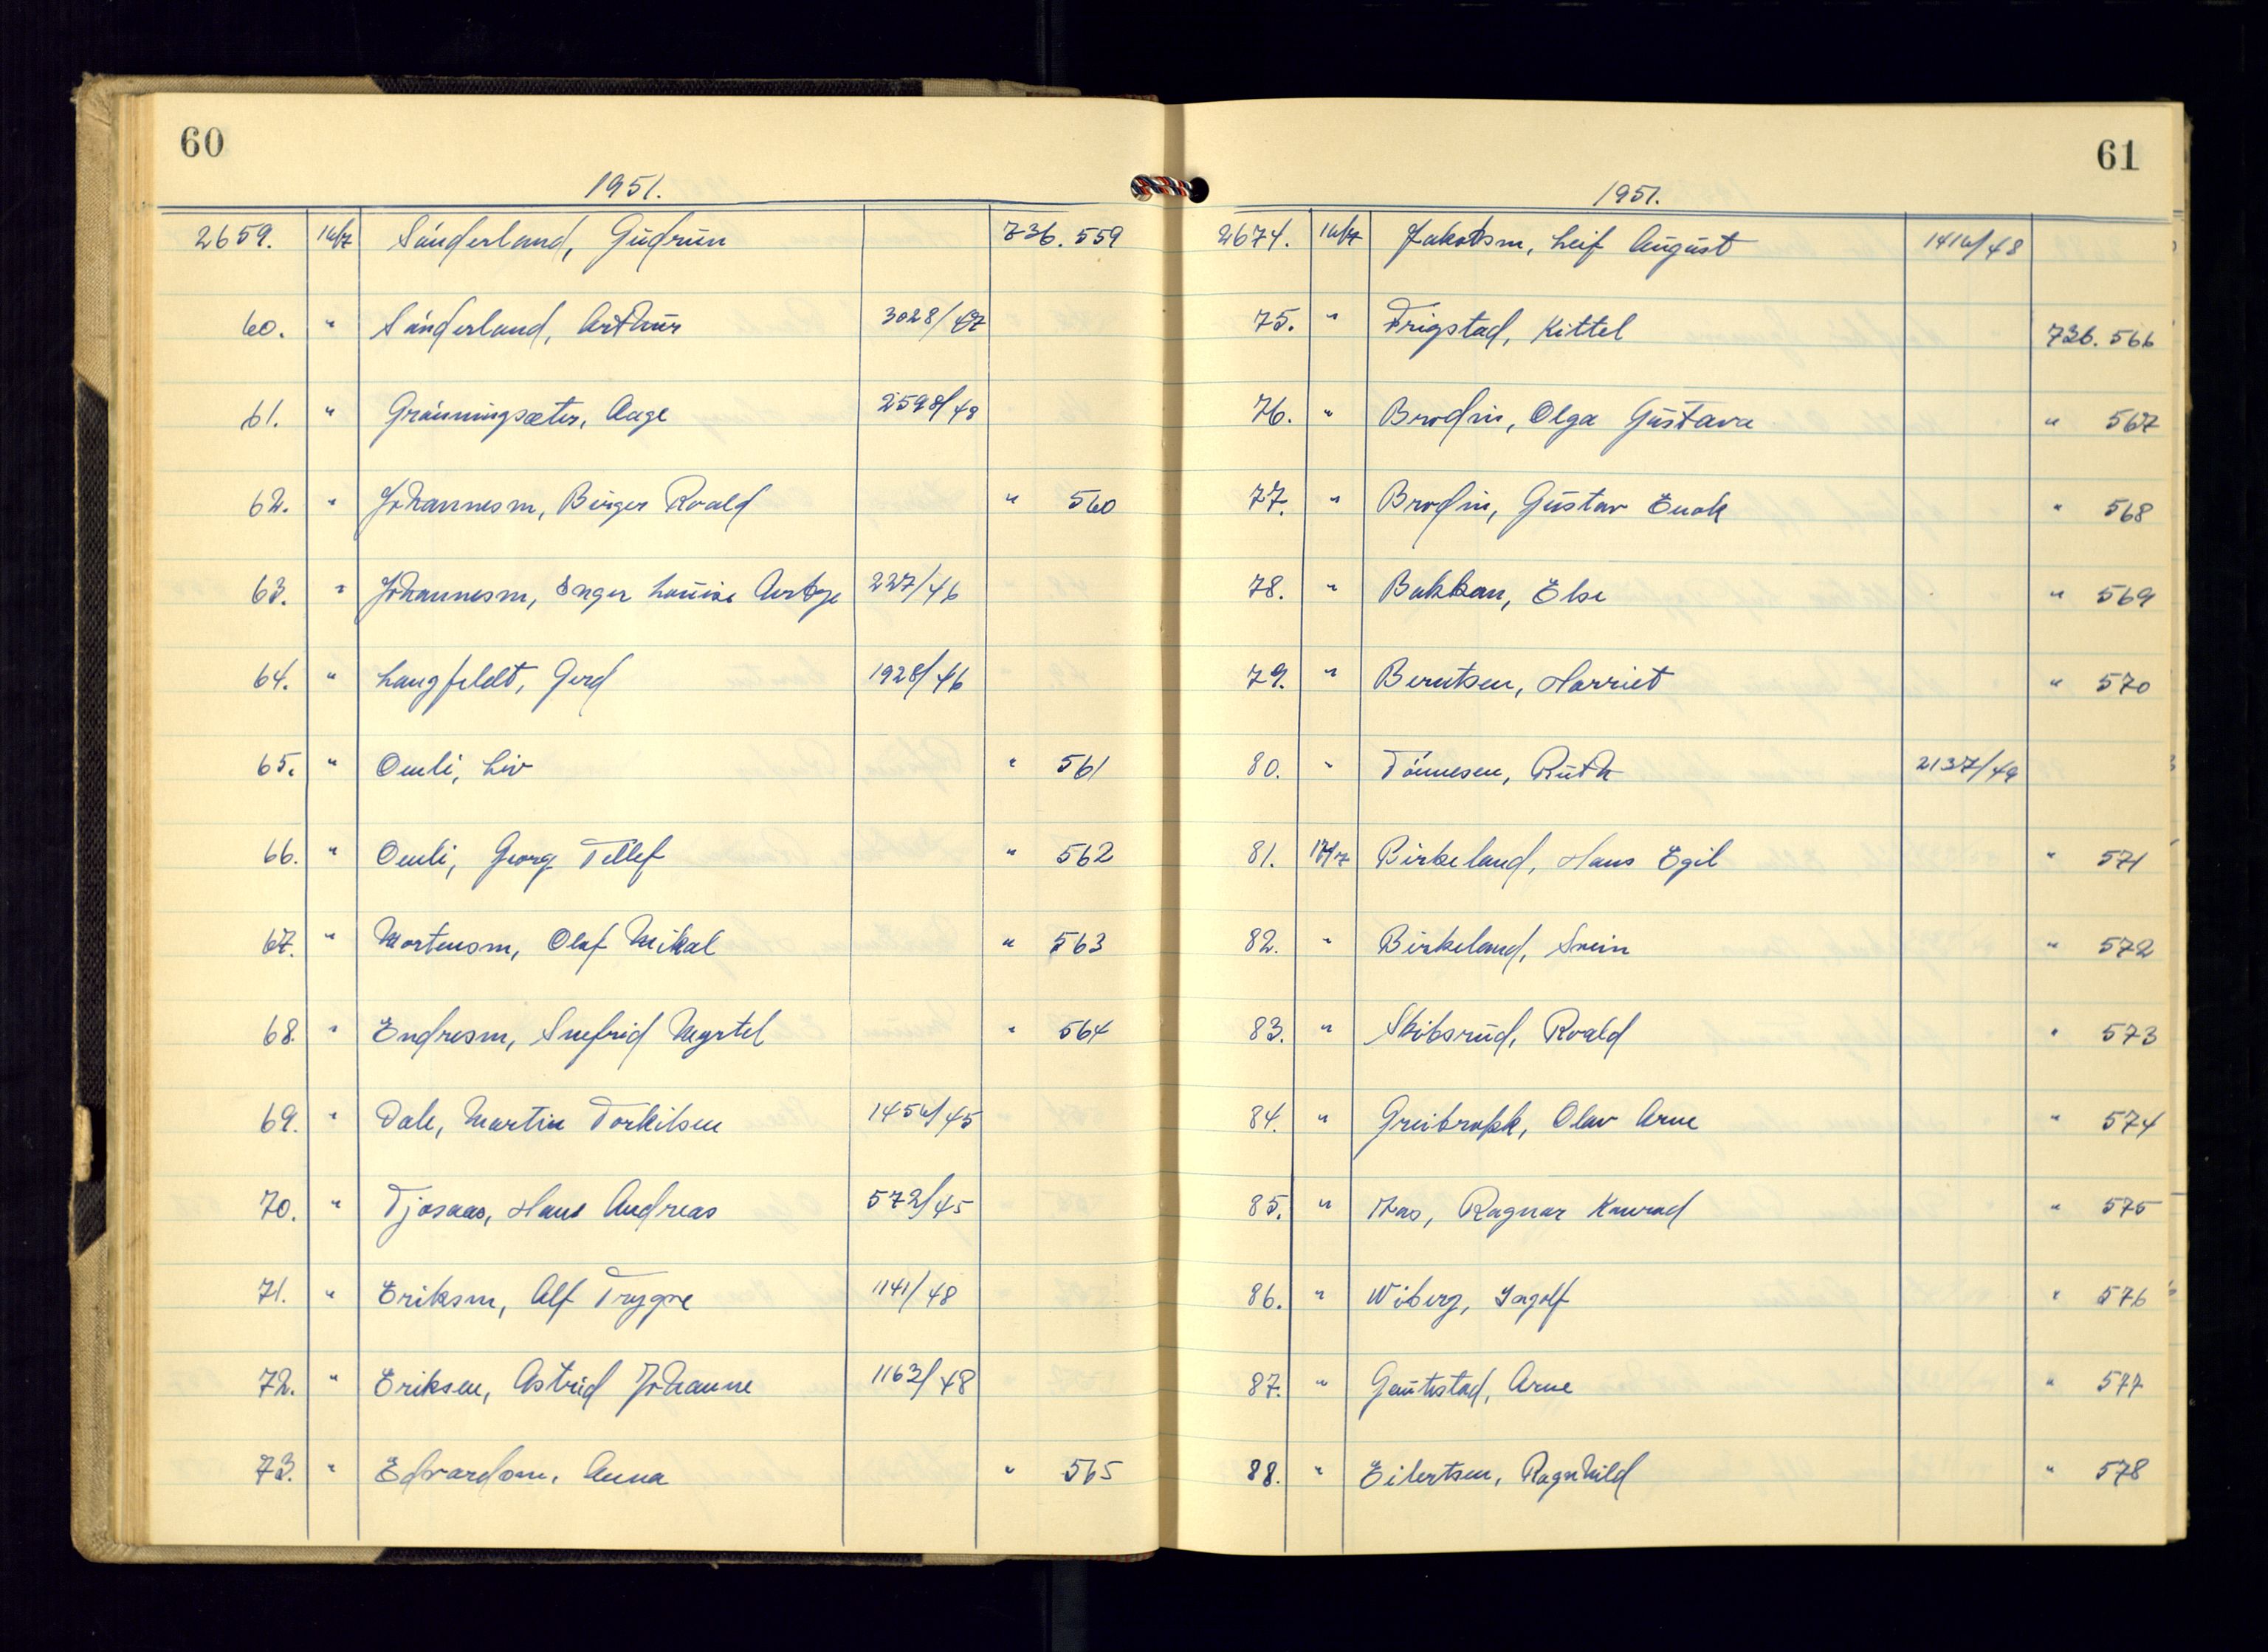 60
1951.
2659. 16/7 Sånderland, Gudrun 736.559
60. " Sånderland, Arthur 3028/47
61. " Grånningsæter, Aage 2598/48
62. " Johannesen, Birger Roald " 560
63. " Johannesen, Inger Louise 227/46
64. " Langfeldt, Gerd 1928/46
65. " Omli, Liv " 561
66. " Omli, Georg Tellef " 562
67. " Mortensen, Olaf Mikal " 563
68. " Endresen, Snefrid Myrtel " 564
69. " Dale, Martin Torkilsen 1456/45
70. " Tjosaas, Hans Andreas 572/45
71. " Eriksen, Alf Trygve 1141/48
72. " Eriksen, Astrid Johanne 1163/48
73. " Edvardsen, Anna " 565
61
1951.
2674. 16/7 Jakobsen, Leif August 1416/48
75. " Frigstad, Kittel 736.566
76. " Brodin, Olga Gustava " 567
77. " Brodin, Gustav Enok " 568
78. " Bakkan, Else " 569
79. " Berntsen, Harriet " 570
80. " Tønnesen, Ruth 2137/49
81. 17/7 Birkeland, Hans Egil " 571
82. " Birkeland, Svein " 572
83. " Skibsrud, Roald " 573
84. " Greibrokk, Olav Arne " 574
85. " Aas, Ragnar Konrad " 575
86. " Wiberg, Ingolf " 576
87. " Gautestad, Arne " 577
88. " Eilertsen, Ragnhild " 578